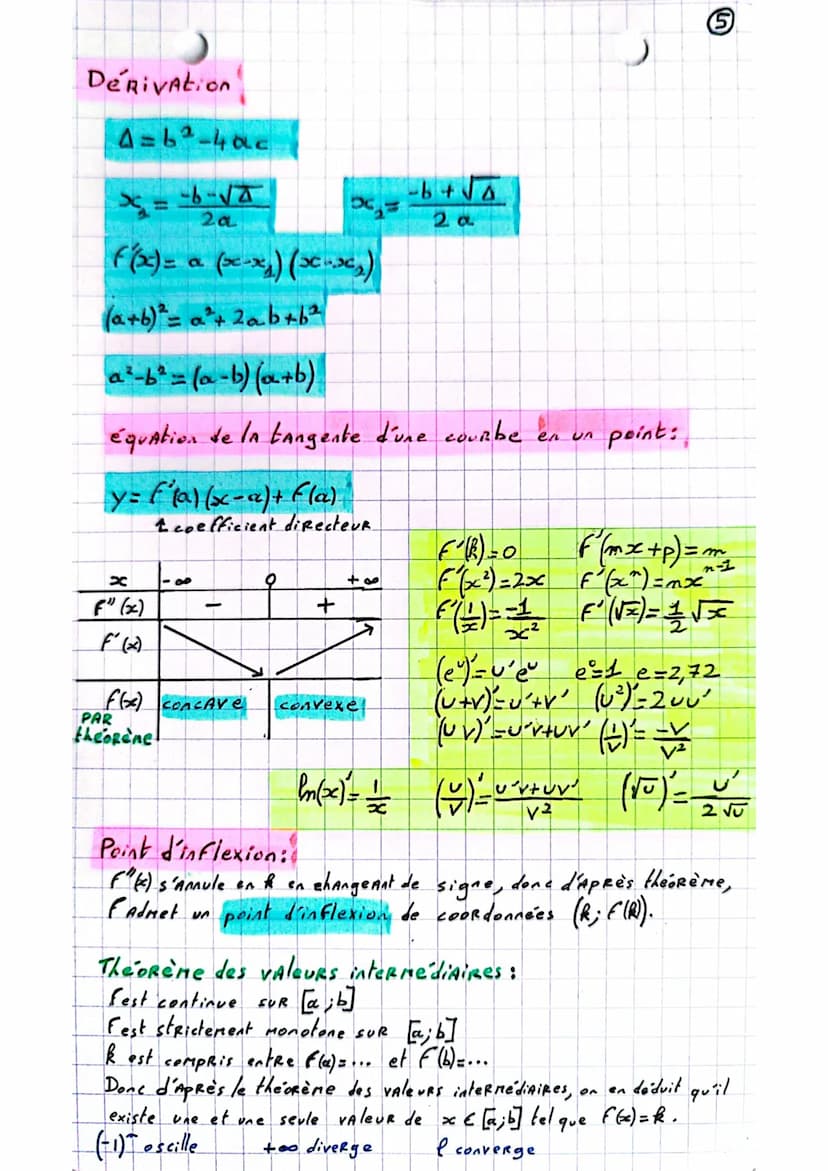 ⑤
Dérivation
Δ = b² - 4ac
x₁ = (-b-√Δ)/2a    x₂ = (-b+√Δ)/2a
f'(x) = a (x-x₁)(x-x₂)
(a+b)² = a² + 2ab + b²
a²-b² = (a-b)(a+b)
équation de la tangente d'une courbe en un point :
y = f'(a)(x-a) + f(a)
↑ coefficient directeur
f'(k) = 0    f'(mx+p) = m
x    -∞    0    +∞    f'(x²) = 2x    f'(xⁿ) = nxⁿ⁻¹
f''(x)    -    +    f'(1/x) = -1/x²    f'(√x) = 1/2 √x
f'(x)
(eᵘ)' = u'eᵘ    e⁰=1    e=2,72
f(x)    concave    convexe    (u+v)' = u'+v'    (u²)' = 2uu'
PAR théorème    (uv)' = u'v+uv'    (1/v)' = -v/v²
ln(x)' = 1/x    (u/v)' = (u'v+uv')/v²    (√u)' = u'/2√u
Point d'inflexion :
f''(x) s'annule en k en changeant de signe, donc d'après théorème,
f admet un point d'inflexion de coordonnées (k; f(k)).
Théorème des valeurs intermédiaires :
f est continue sur [a;b]
f est strictement monotone sur [a;b]
k est compris entre f(a)=... et f(b)=...
Donc d'après le théorème des valeurs intermédiaires, on en déduit qu'il
existe une et une seule valeur de x ∈ [a;b] tel que f(x)=k.
(-1)ⁿ oscille    +∞ diverge    ℓ converge